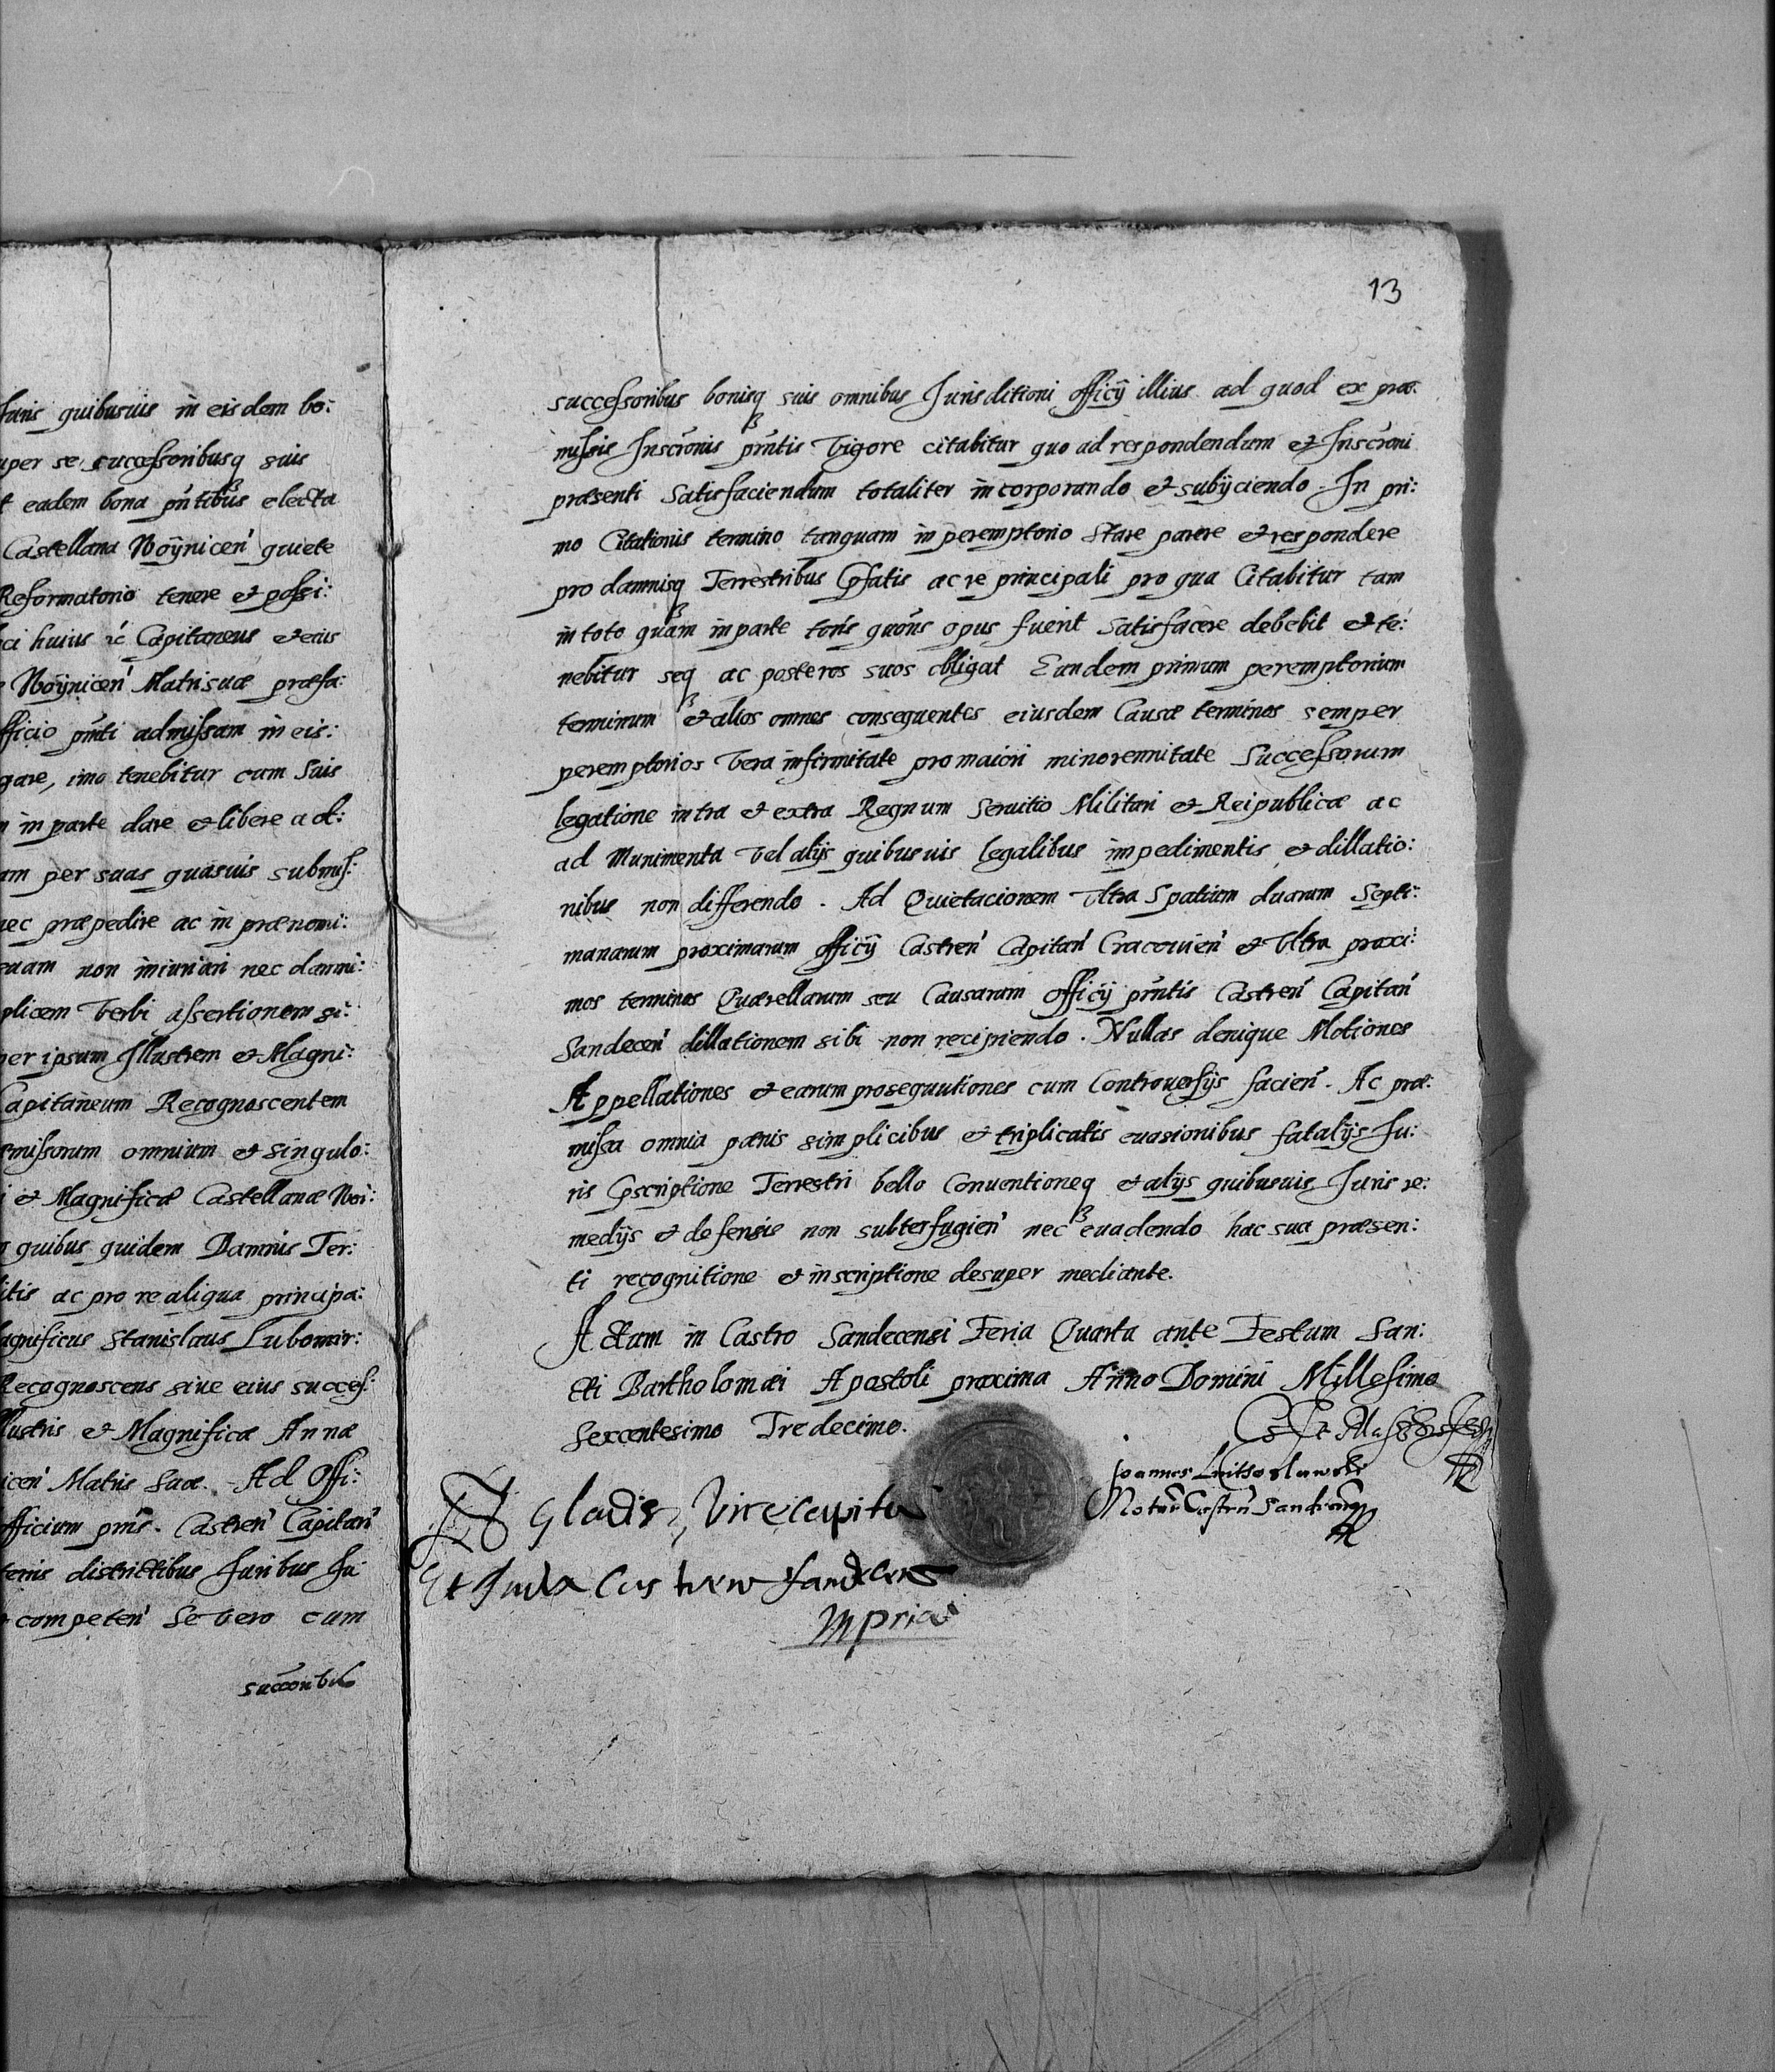 Juris quibusuis in eisdem bo:
super se successoribusq suis
eadem bona pntibus electa
Castellana Woÿnicen quiete
Reformatorio tenere et possi:
huius Capitaneus et eius
Woÿnicen Matri suæ præfa:
officio pnti admissam in eis:
imo tenebitur cum suis
in parte dare et libere ad:
per suas quasuis submiss:
nec præpedire ac in prænomi:
non iniuriari nec damni:
plicem verbi assertionem si:
per ipsum Illustrem et Magni:
Capitaneum Recognoscentem
omnium et singulo:
et Magnificæ Castellanæ Woi:
quibus quidem Damnis Ter:
ac pro re aliqua principa:
Magnificus Stanislaus Lubomir:
Recognoscens siue eius success:
Illustris et Magnificæ Annæ
Matris suæ. Ad Offi:
officium pns. Castren Capitan
districtibus Juribus Ju
competen Se vero cum
succoribus
13
successoribus bonisq suis omnibus Jurisditioni officÿ illius ad quod ex præ:
missis Inscronis pntis vigore citabitur quo ad respondendum et Inscroni
præsenti Satisfaciendum totaliter incorporando et subÿciendo. In pri:
mo Citationis termino tanquam in peremptorio Stare parere et respondere
pro damnisq Terrestribus pfatis ac re principali pro qua Citabitur tam
in toto quam in parte toris quons opus fuerit Satisfacere debebit et te:
nebitur seq ac posteros suos obligat Eundem primum peremptorium
terminum et alios omnes consequentes eiusdem Causæ terminos semper
peremptorios vera infirmitate pro maiori minorennitate Successorum
legatione intra et extra Regnum Seruitio Militari et Reipublicæ ac
ad Munimenta vel alÿs quibusuis legalibus impedimentis et dillatio:
nibus non differendo. Ad Quietacionem vltra Spatium duarum Septi:
manarum proximarum officÿ Castren Capitan Cracouien et vltra proxi:
mos terminos Quærellarum seu Causarum officÿ pntis Castren Capitan
Sandecen dillationem sibi non recipiendo. Nullas denique Motiones
Appellationes et earum prosequutiones cum Controuersÿs facien. Ac præ:
missa omnia pænis simplicibus et triplicatis euasionibus fatalÿs Ju:
ris pscriptione Terrestri bello Conuentioneq et alÿs quibusuis Juris re:
medÿs et defensis non subterfugien nec euadendo hac sua præsen:
ti recognitione et inscriptione desuper mediante.
Actum in Castro Sandecensi Feria Quarta ante Festum San:
cti Bartholomæi Apostoli proxima Anno Domini Millesimo
Sexcentesimo Tredecimo.
Gladis, Vicecapita
Et Judex Castren Sandecens
mpria
Joannes
Notari Castren Sandecen